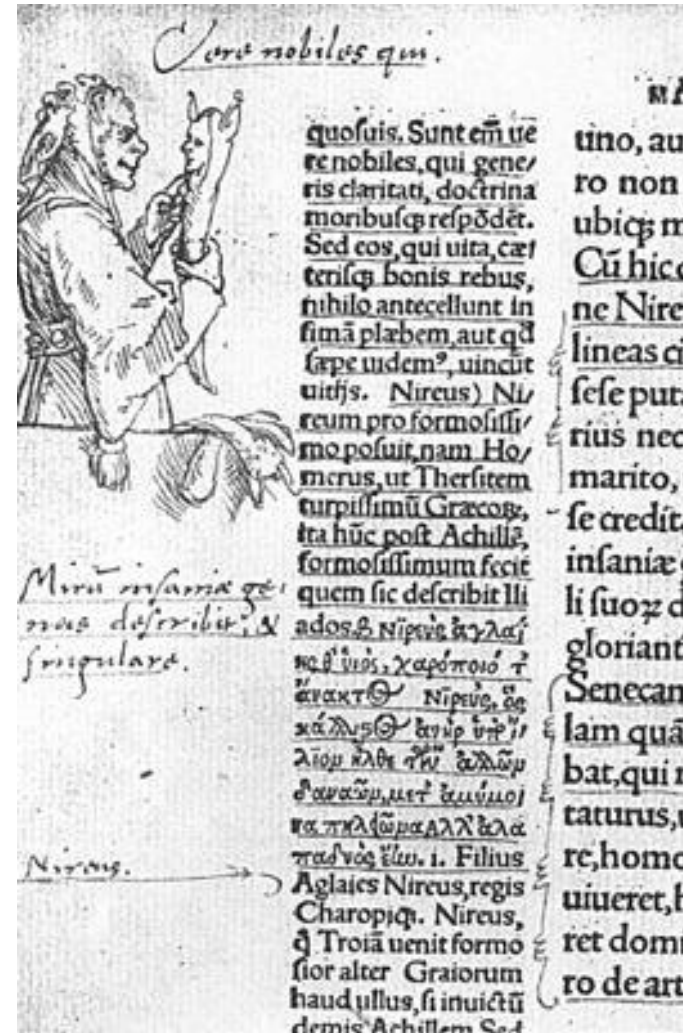 Vere nobiles qui.
quoſuis. Sunt em̄ ue
re nobiles, qui gene/
ris claritati, doctrina
moribuſq; reſpōdēt.
Sed eos, qui uita, cæ
teriſq; bonis rebus,
nihilo antecellunt in
fimā plæbem, aut qđ
ſæpe uidemꝰ, uincūt
uitijs. Nireus) Ni/
reum pro formoſiſſi/
mo poſuit, nam Ho/
merus, ut Therſitem
turpiſſimū Græcoꝝ,
ita hūc poſt Achillē,
formoſiſſimum fecit
quem ſic deſcribit Ili
ados. β Νιρεὺς ἀγλαΐ
ης θ' υἱὸς, χαρόποιό τ'
ἄνακτος Νιρεὺς, ὃς
κάλλιστος ἀνὴρ ὑπὸ ἴ
λιον ἦλθε τῶν ἄλλων
δαναῶν, μετ' ἀμύμο
να πηλίωνα Αλλ' ἀλα
παδνὸς ἔην. i. Filius
Aglaies Nireus, regis
Charopiq;. Nireus,
q̄ Troiā uenit formo
ſior alter Graiorum
haud ullus, ſi inuictū
demis Achillem Sed
Mirū inſaniæ ge
nus deſcribit, &
ſingulare.
Nireus.
MA
tino, au
ro non
ubiq; m
Cū hic
ne Nire
lineas ci
ſeſe put
rius nec
marito,
ſe credit
inſaniæ
li ſuoꝝ d
gloriant
Senecan
lam quā
bat, qui
taturus,
re, homo
uiueret, h
ret dom
ro de art